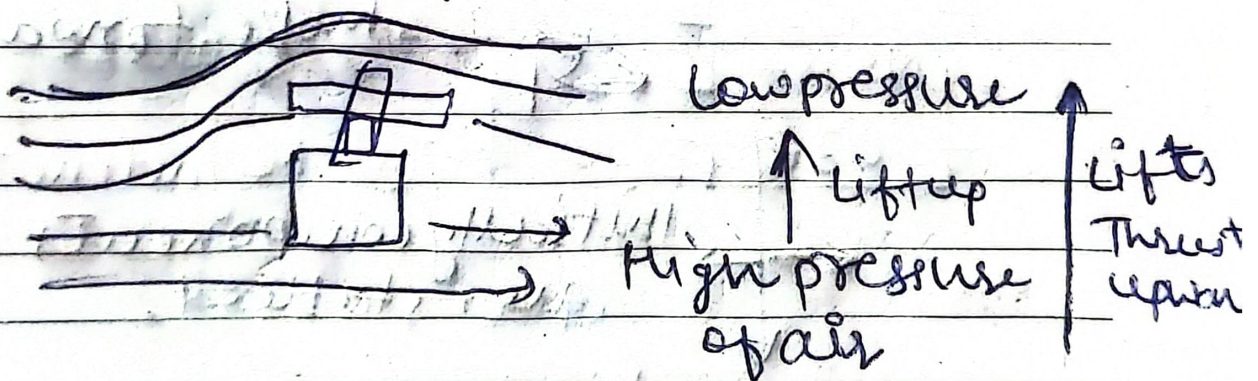 Low pressure
Lift up
High pressure
of air
Lifts
Thrust